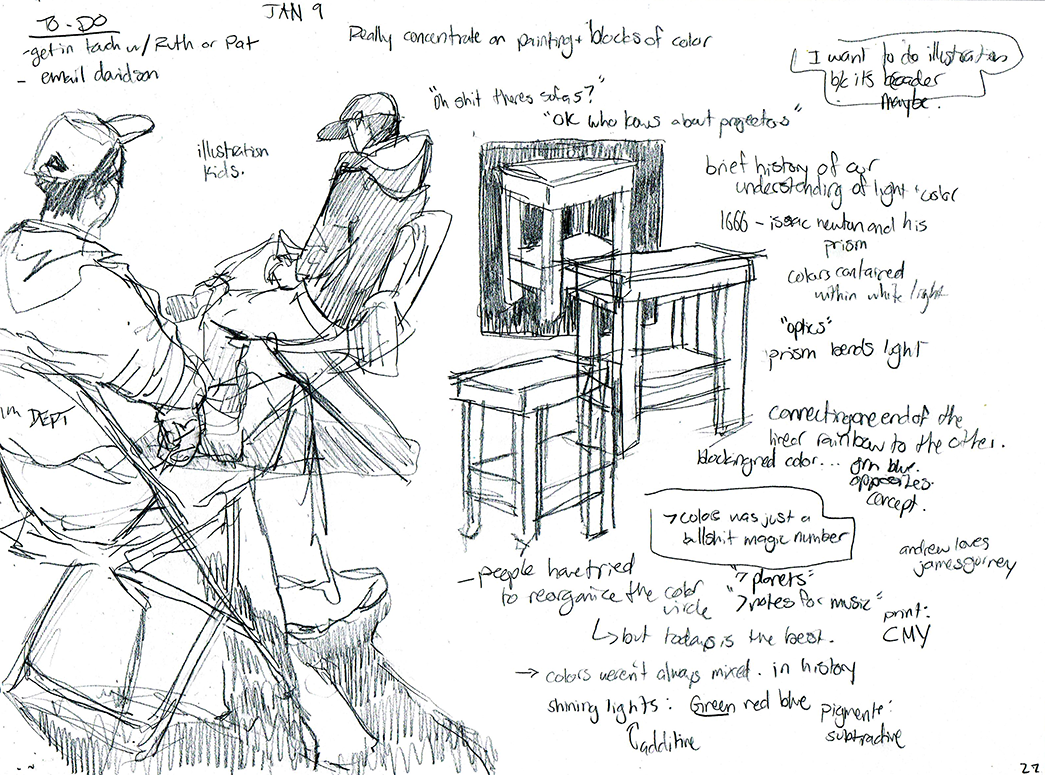 TO-DO
-get in touch w/ Ruth or Pat
- email davidson
JAN 9
Really concentrate on painting + blocks of color
I want to do illustration
b/c its broader
maybe.
"oh shit theres sofas?"
"OK who knows about projectors"
illustration
kids.
brief history of our
understanding of light + color
1666 - isaac newton and his
prism
colors contained
within white light
"optics"
prism bends light
DEPT
connecting one end of the
linear rainbow to the other.
blocking red color... grn blue.
opposites.
concept.
→ colors was just a
bllshit magic number
andrew loves
james gurney
"7 planets"
"7 notes for music"
- people have tried
to reorganize the color
circle
↳ but todays is the best.
print:
CMY
→ colors weren't always mixed. in history
shining lights: Green red blue
↑ additive
pigments:
subtractive
22